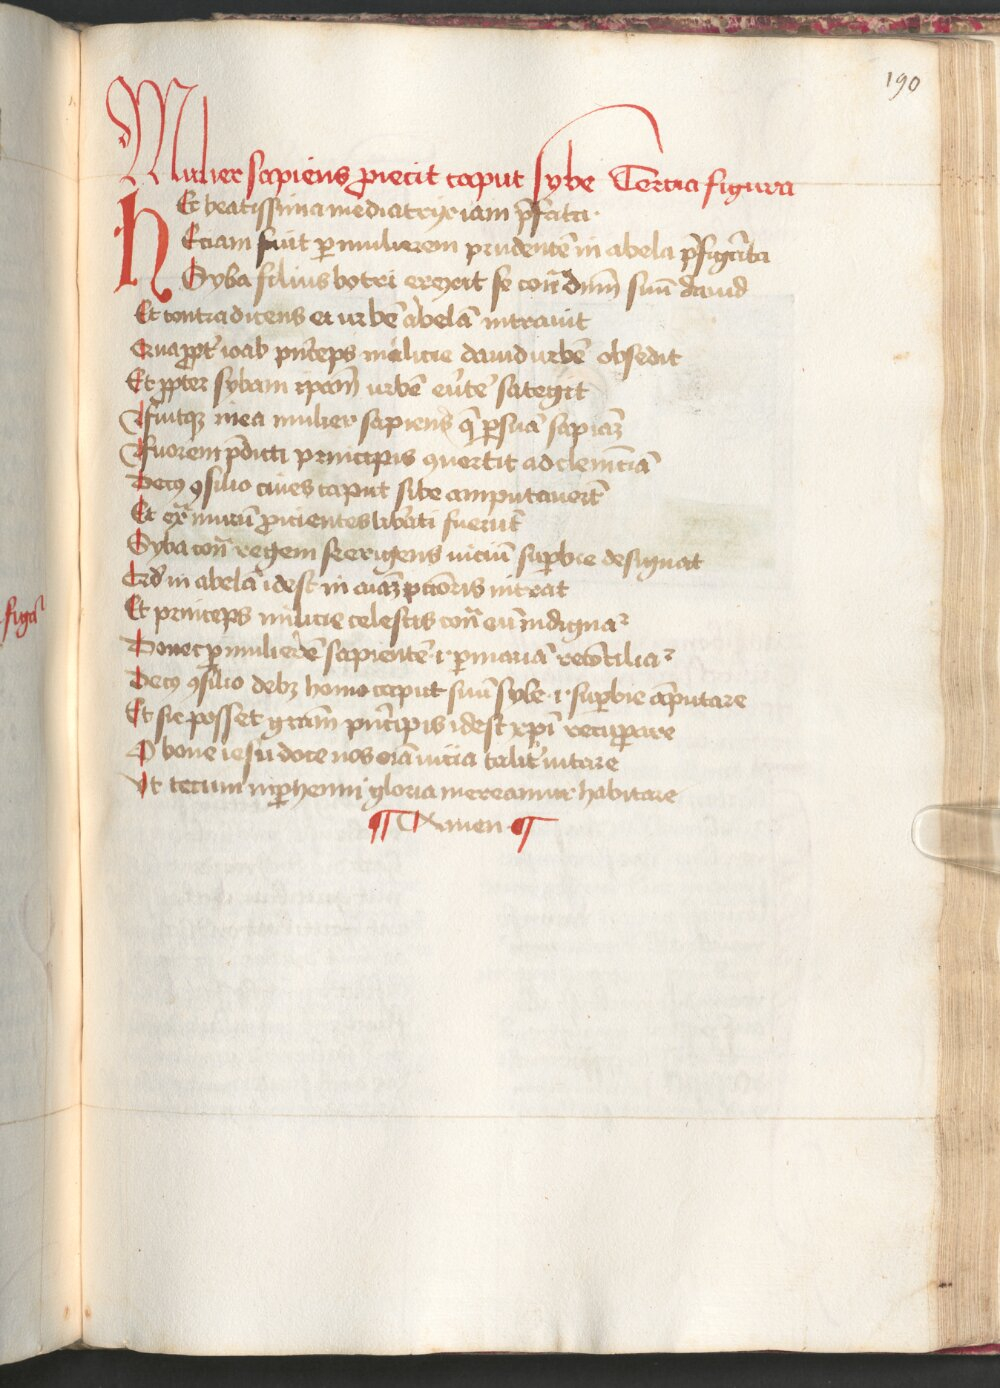 190
Mulier sapiens proiecit caput sybe Tercia figura
Hec beatissima mediatrix iam p̄fata
Eciam fuit ꝑ mulierem prudentē in abela p̄figurata
Syba filius botri erexit se contͣ dn̄m suū dauid
Et contradicens ei urbē abelā intrauit
Quapropt̓ ioab pͥnceps milicie dauid urbē obsedit
Et ꝓpter sybam ip̄am urbē eu̓te̓ sategit
Fuitqꝫ in ea mulier sapiens q̄ ꝑ suā sapiāꝫ
Furorem p̄dicti principis ꝯuertit ad clemēciā
De cꝰ ꝯsilio ciues caput sibe amputauerūt
Et exͣ murū ꝓicientes lib̓ati fuerūt
Syba contͣ regem se erigens uiciū suꝑbie designat
Qd̓ in abelā idest in aīaꝫ pctōris intrat
Et princeps milicie celestis contͣ eū indignaꝛ
Donec ꝑ mulierē sapientē .i. ꝑ mariā recōciliaꝛ
De cꝰ ꝯsilio debꝫ homo caput suū sybe .i. suꝑbie āputare
Et sic posset gr̄am pͥncipis idest xp̄i recuꝑare
O bone iesu doce nos oīa uicia talit̓ uitare
Ut tecum in ꝑhenni gloria mereamur habitare
¶ Amen ¶
figͣ